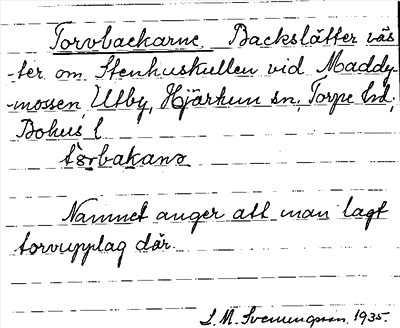 Torvbackarne. Backslätter väs
-ter om Stenhuskullen vid Maddy-
-mossen, Utby, Hjärtum sn, Torpe hd,
Bohus l
tòrbakana
Namnet anger att man lagt
torvupplag där.
S. M. Svenungson, 1935.